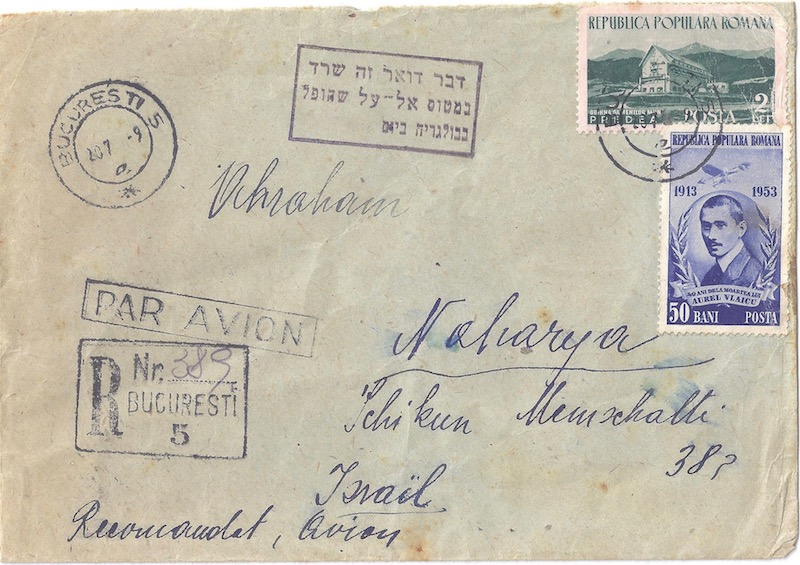 REPUBLICA POPULARA ROMANA
PREDEAL
POSTA
2
LEI
REPUBLICA POPULARA ROMANA
1913 1953
40 ANI DELA MOARTEA LUI
AUREL VLAICU
50 BANI POSTA
דבר דואר זה שרד
במטוס אל-על שהופל
בבולגריה ביום
BUCURESTI 5
207 -9
a
Abraham
PAR AVION
Naharya
R Nr. 389
BUCURESTI
5
Schikun Memschalti
38
Israël
Recomandat, Avion